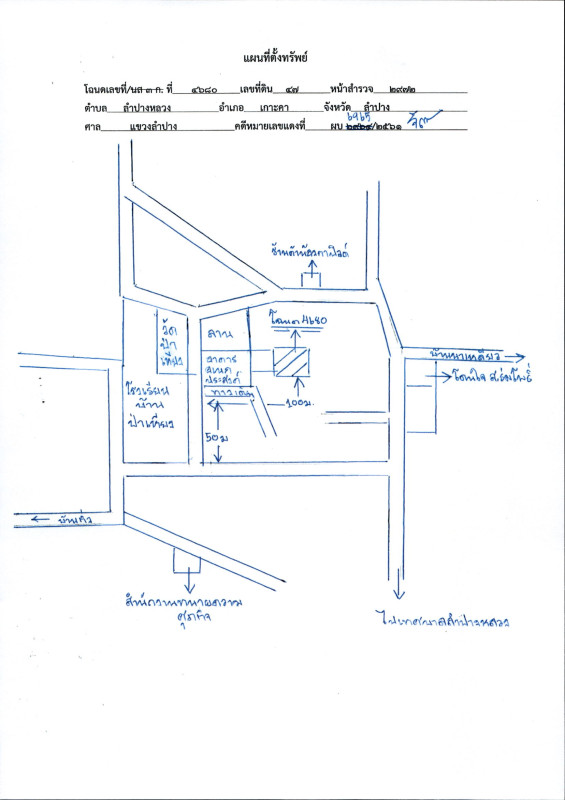 แผนที่ตั้งทรัพย์
โฉนดเลขที่/นส ๓ ก. ที่ ๔๖๘๐ เลขที่ดิน ๔๗ หน้าสำรวจ ๒๙๗๒
ตำบล ลำปางหลวง อำเภอ เกาะคา จังหวัด ลำปาง
ศาล แขวงลำปาง คดีหมายเลขแดงที่ ผบ /๒๕๖๑
โฉนด 4680
วัด
ป่า
เหี้ยง
ลาน
อาคาร
อเนก
ประสงค์
ทางเดิน
100ม.
50ม
โรงเรียน
บ้าน
ป่าเหี้ยง
สำนักงานทนายความ
ศุภกิจ
ไปเทศบาลลำปางหลวง